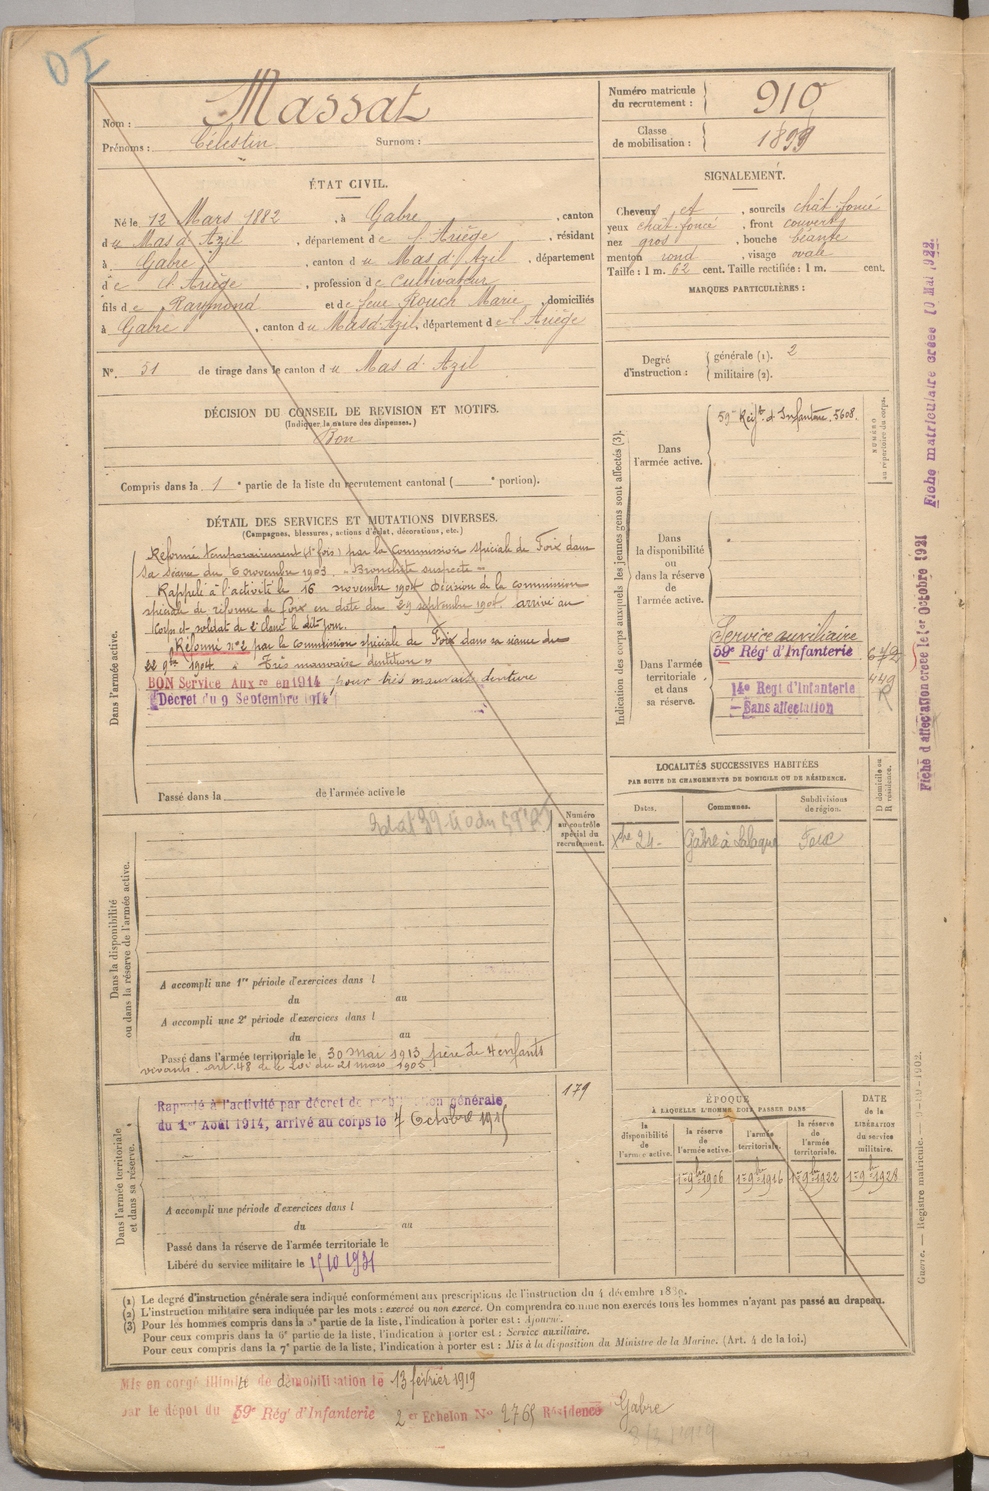 Nom : Massat
Prénoms : Célestin Surnom :
Numéro matricule du recrutement : 910
Classe de mobilisation : 1899
ÉTAT CIVIL.
Né le 12 Mars 1882, à Gabre, canton
du Mas d'Azil, département de l'Ariège, résidant
à Gabre, canton du Mas d'Azil, département
de l'Ariège, profession de Cultivateur
fils de Raymond et de feue Rouch Marie, domiciliés
à Gabre, canton du Mas d'Azil, département de l'Ariège
N° 51 de tirage dans le canton du Mas d'Azil
SIGNALEMENT.
Cheveux et, sourcils chât. foncé
yeux chât. foncé, front couvert
nez gros, bouche béante
menton rond, visage ovale
Taille : 1 m. 62 cent. Taille rectifiée : 1 m. cent.
MARQUES PARTICULIÈRES :
Degré d'instruction : générale (1). 2
militaire (2).
DÉCISION DU CONSEIL DE REVISION ET MOTIFS.
(Indiquer la nature des dispenses.)
Bon
Compris dans la 1e partie de la liste du recrutement cantonal ( e portion).
DÉTAIL DES SERVICES ET MUTATIONS DIVERSES.
(Campagnes, blessures, actions d'éclat, décorations, etc.)
Dans l'armée active.
Réformé temporairement (1re fois) par la Commission spéciale de Foix dans
sa séance du 6 novembre 1903. "Bronchite suspecte"
Rappelé à l'activité le 16 novembre 1904 décision de la commission
spéciale de réforme de Foix en date du 29 septembre 1904. arrivé au
Corps et soldat de 2e classe le dit jour.
Réformé n°2 par la commission spéciale de Foix dans sa séance du
9bre 1904. "Très mauvaise dentition"
BON Service Auxre en 1914 pour très mauvaise denture
Décret du 9 Septembre 1914
Passé dans la de l'armée active le
Indication des corps auxquels les jeunes gens sont affectés (3).
NUMÉRO au répertoire du corps.
Dans l'armée active.
59e Régt d'Infanterie. 5608.
Dans la disponibilité ou dans la réserve de l'armée active.
Dans l'armée territoriale et dans sa réserve.
Service auxiliaire
59e Régt d'Infanterie 672
14e Regt d'Infanterie 449
Sans affectation R
LOCALITÉS SUCCESSIVES HABITÉES
PAR SUITE DE CHANGEMENTS DE DOMICILE OU DE RÉSIDENCE.
Dates. Communes. Subdivisions de région. D domicile ou R résidence.
Xbre 24. Gabre à Foix
Numéro au contrôle spécial du recrutement.
Dans la disponibilité ou dans la réserve de l'armée active.
A accompli une 1re période d'exercices dans l
du au
A accompli une 2e période d'exercices dans l
du au
Passé dans l'armée territoriale le 30 mai 1913 père de 4 enfants
vivants. art. 48 de la Loi du 21 mars 1905.
179
Dans l'armée territoriale et dans sa réserve.
Rappelé à l'activité par décret de mobilisation générale
du 1er Août 1914, arrivé au corps le 7 Octobre 1915
A accompli une période d'exercices dans l
du au
Passé dans la réserve de l'armée territoriale le
Libéré du service militaire le 15 10 1931
ÉPOQUE
À LAQUELLE L'HOMME DOIT PASSER DANS
la disponibilité de l'armée active.
la réserve de l'armée active.
l'armée territoriale.
la réserve de l'armée territoriale.
DATE de la LIBÉRATION du service militaire.
1er 9bre 1906 1er 9bre 1916 1er 9bre 1922 1er 9bre 1928
(1) Le degré d'instruction générale sera indiqué conformément aux prescriptions de l'instruction du 4 décembre 1889.
(2) L'instruction militaire sera indiquée par les mots : exercé ou non exercé. On comprendra comme non exercés tous les hommes n'ayant pas passé au drapeau.
(3) Pour les hommes compris dans la 5e partie de la liste, l'indication à porter est : Ajourné.
Pour ceux compris dans la 6e partie de la liste, l'indication à porter est : Service auxiliaire.
Pour ceux compris dans la 7e partie de la liste, l'indication à porter est : Mis à la disposition du Ministre de la Marine. (Art. 4 de la loi.)
Mis en congé illimité de démobilisation le 13 février 1919
par le dépôt du 59e Régt d'Infanterie 2er Echelon No 2765 Résidence Gabre
Fiche matriculaire créée 10 Mai 1922.
Fiche d'affectation créée le 1er Octobre 1921
Guerre. — Registre matricule.